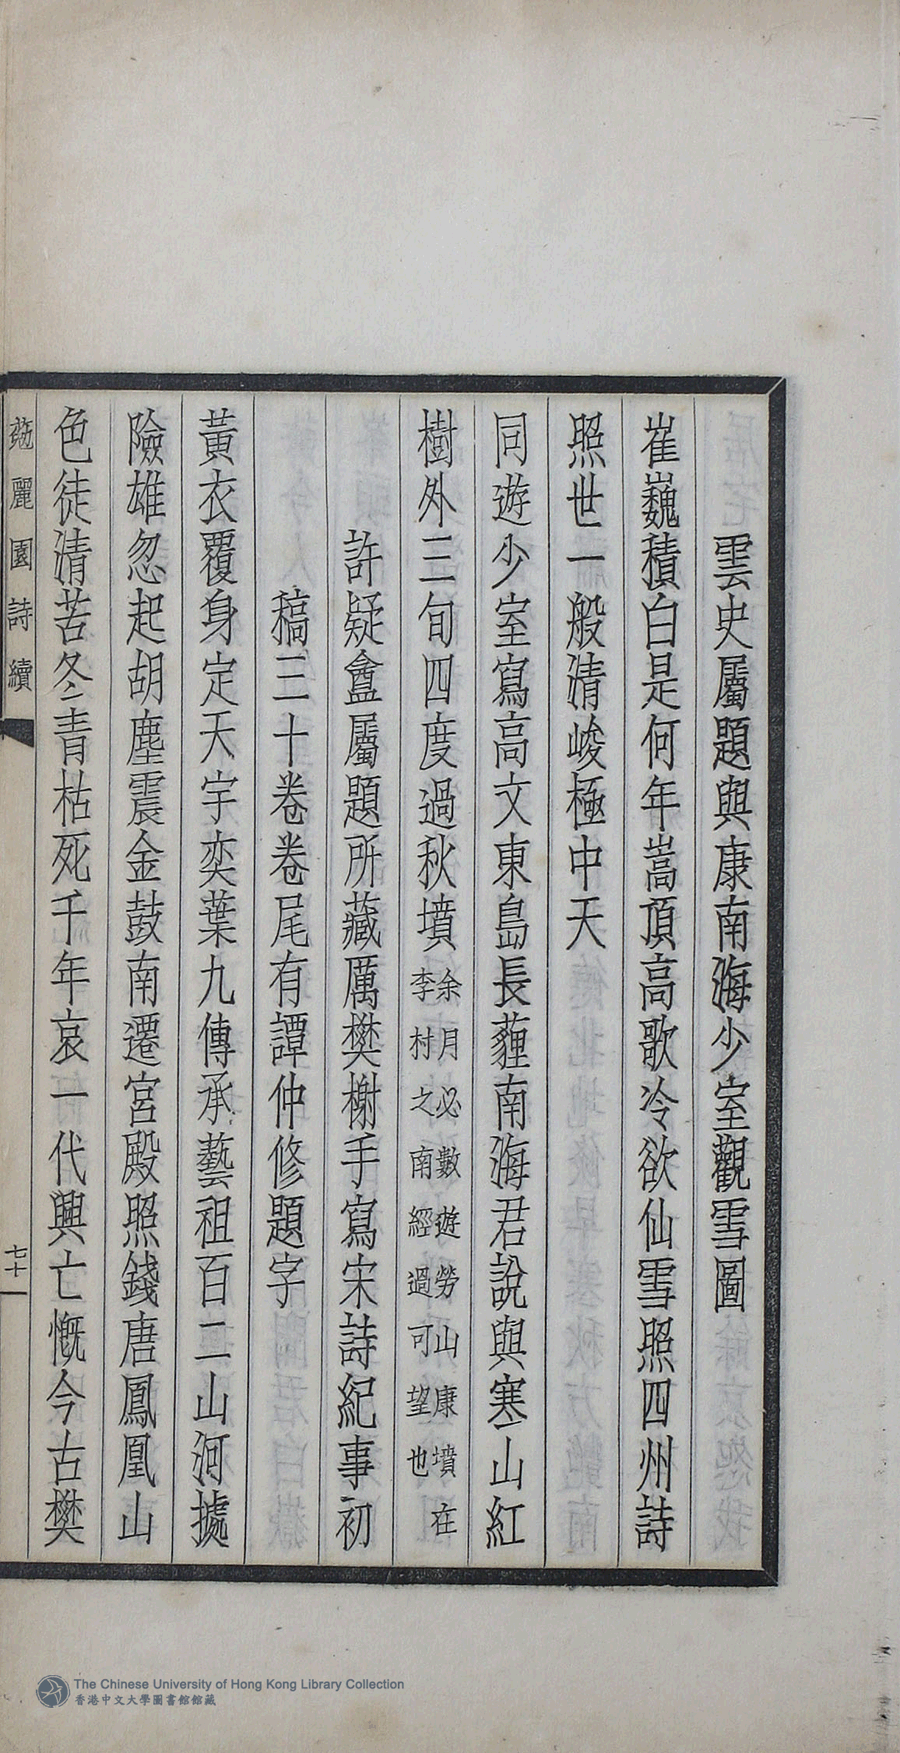 雲史屬題與康南海少室觀雪圖
崔巍積白是何年嵩頂高歌冷欲仙雪照四州詩
照世一般清峻極中天
同遊少室寫高文東島長薶南海君說與寒山紅
樹外三旬四度過秋墳余月必數遊勞山康墳在
李村之南經過可望也
許疑盦屬題所藏厲樊榭手寫宋詩紀事初
稿三十卷卷尾有譚仲修題字
黃衣覆身定天宇奕葉九傳承藝祖百二山河據
險雄忽起胡塵震金鼓南遷宮殿照錢唐鳳凰山
色徒清苦冬青枯死千年哀一代興亡慨今古樊
蒐麗園詩續
七十一
The Chinese University of Hong Kong Library Collection
香港中文大學圖書館館藏